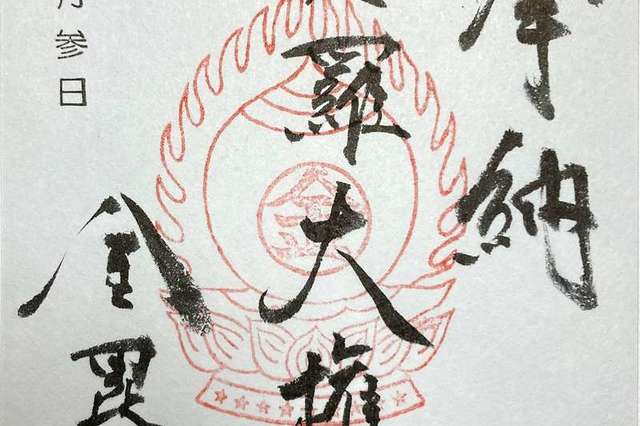 奉納
羅大権
金
金毘
月参日